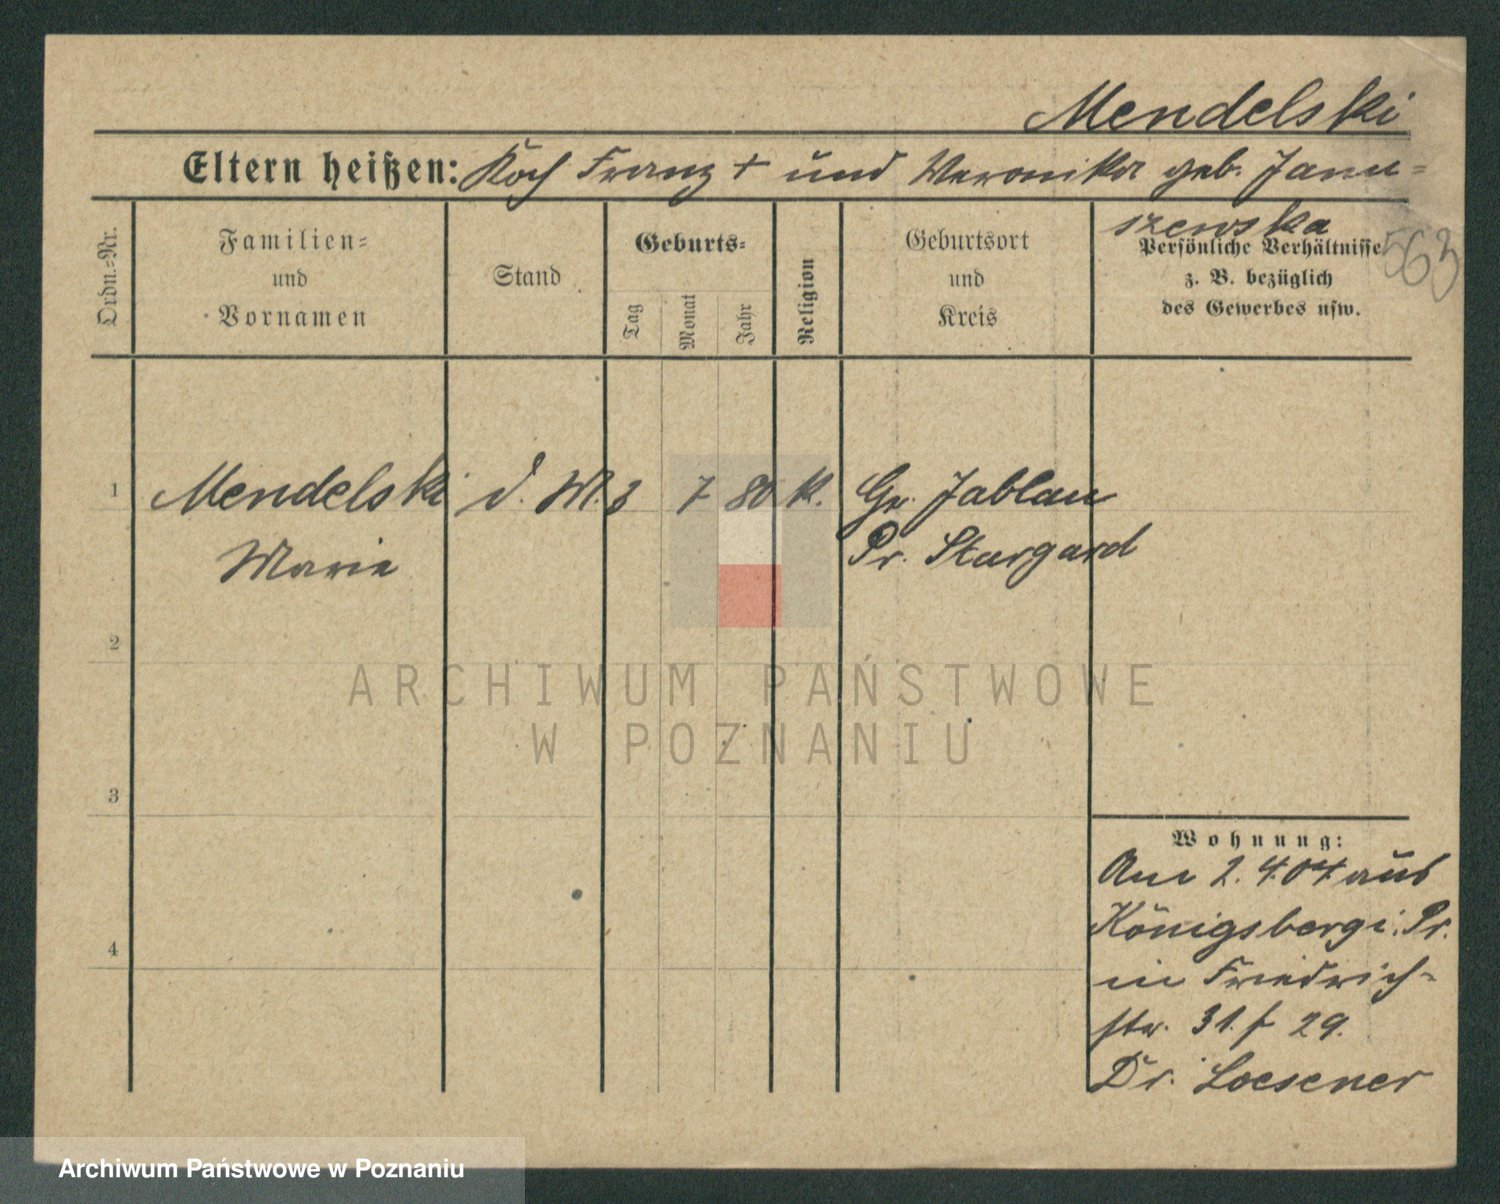 Mendelski
Eltern heißen: Koch Franz + und Veronika geb. Janu=
szewska
563
Ordn.-Nr.
Familien=
und
Vornamen
Stand
Geburts=
Tag
Monat
Jahr
Religion
Geburtsort
und
Kreis
Persönliche Verhältnisse
z. B. bezüglich
des Gewerbes usw.
1 Mendelski d. M. 3 7 80 K. Gr. Jablau
Marie Pr. Stargard
2
ARCHIWUM PAŃSTWOWE
W POZNANIU
3
Wohnung:
Am 2. 4. 04 aus
4
Königsberg i. Pr.
in Friedrich=
str. 31. f 29.
Dr. Loesener
Archiwum Państwowe w Poznaniu